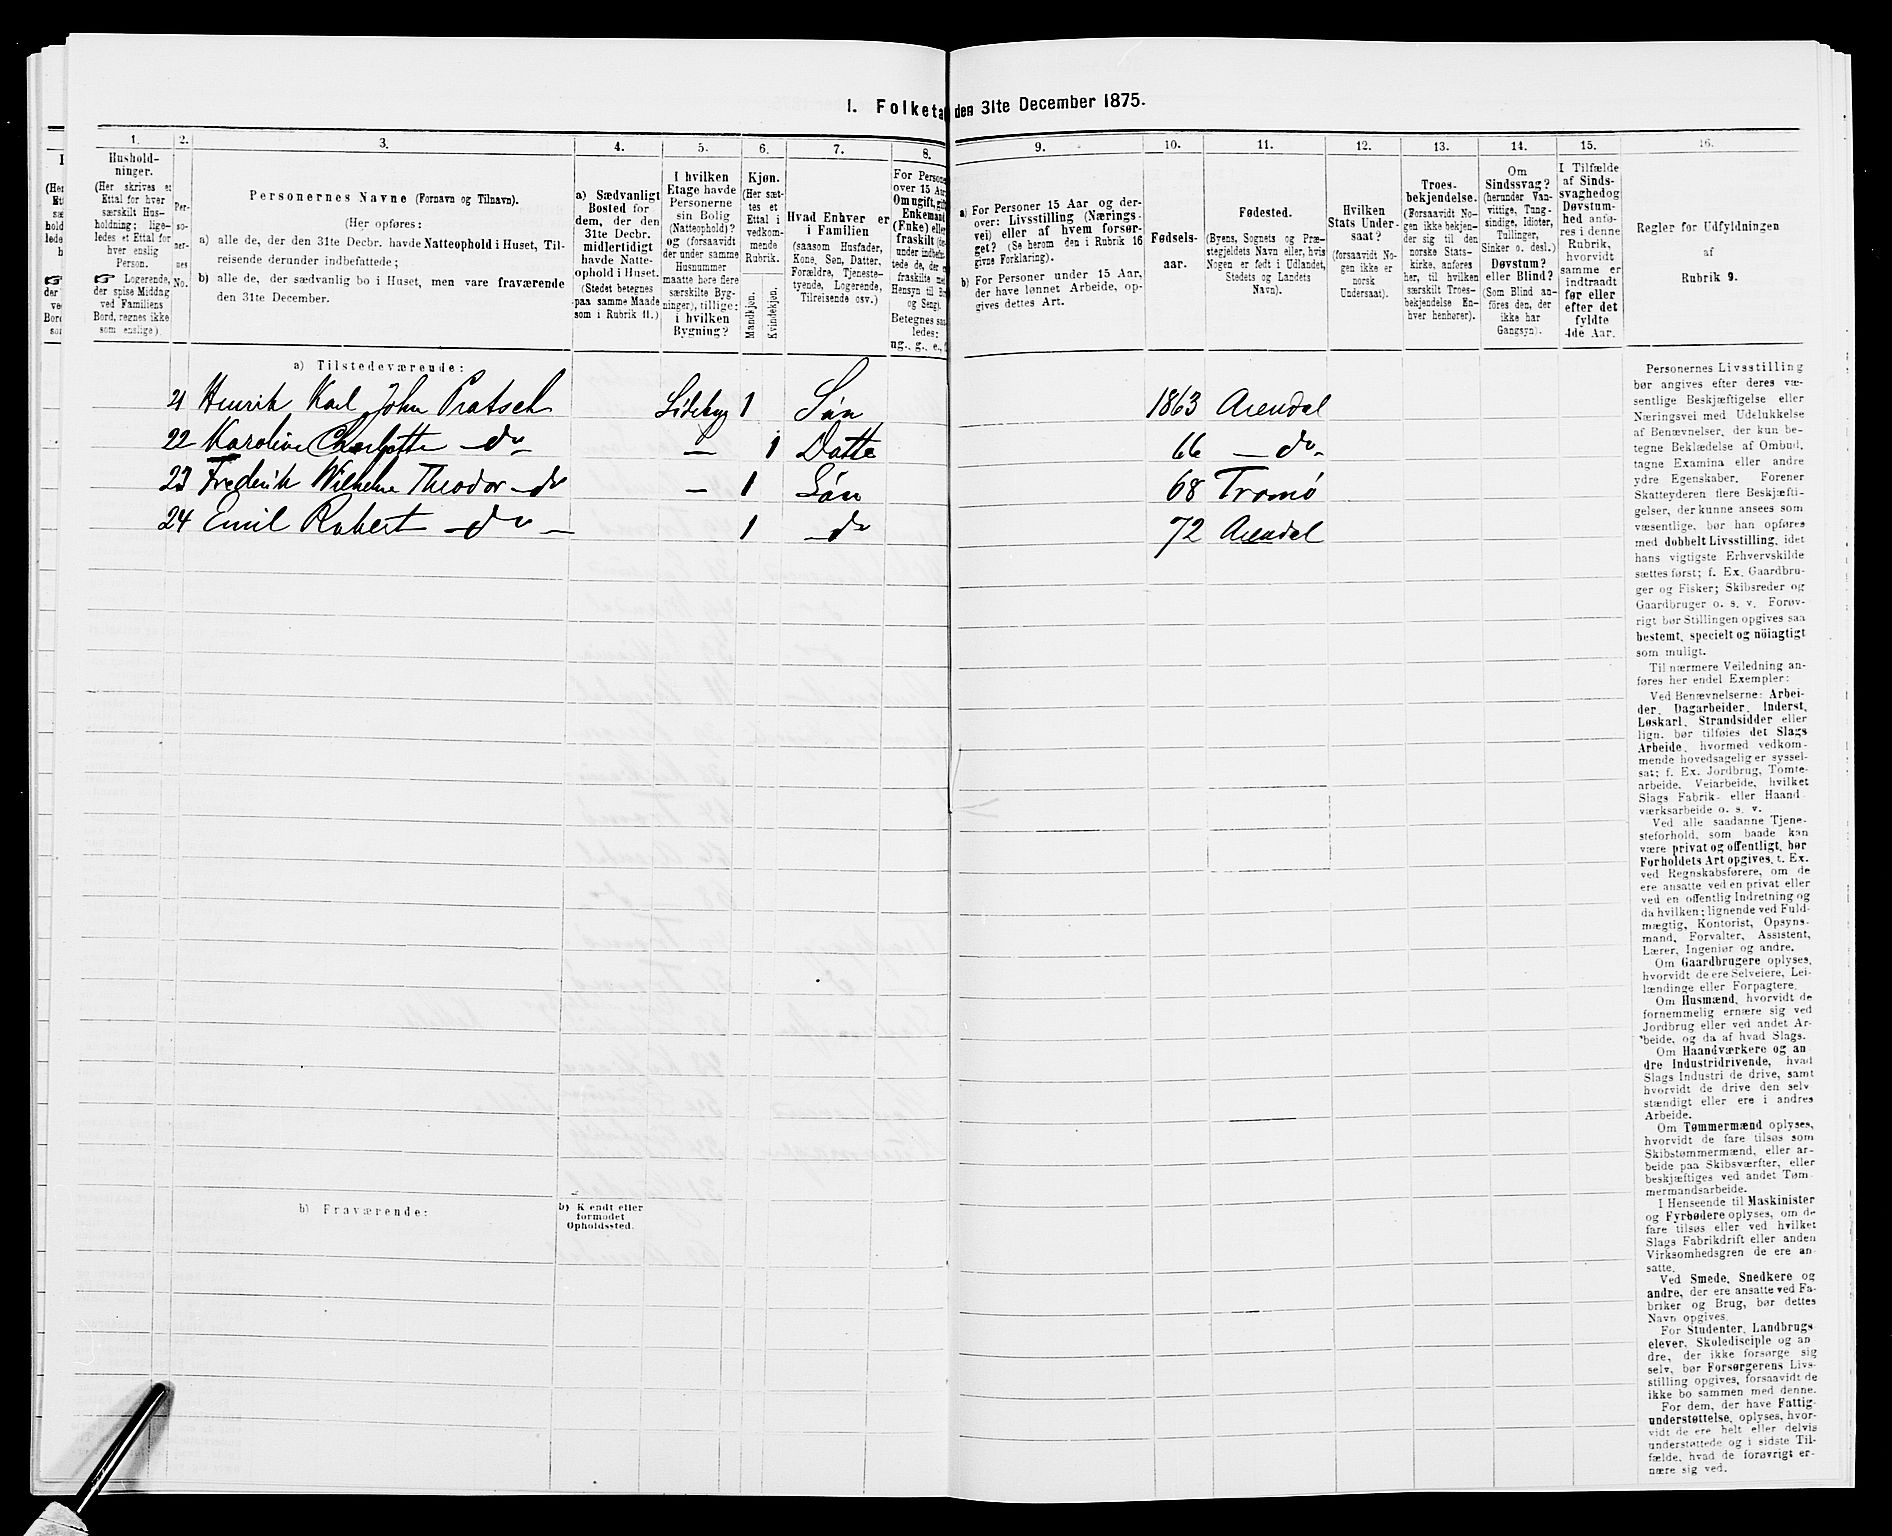 I. Folketa den 31te December 1875.
1.
Hushold-
ninger.
(Her skrives et
Ettal for hver
særskilt Hus-
holdning; lige-
ledes et Ettal for
hver enslig
Person.
☞ Logerende,
der spise Middag
ved Familiens
Bord, regnes ikke
som enslige).
2.
Per-
so-
ner-
nes
No.
3.
Personernes Navne (Fornavn og Tilnavn).
(Her opføres:
a) alle de, der den 31te Decbr. havde Natteophold i Huset, Til-
reisende derunder indbefattede;
b) alle de, der sædvanlig bo i Huset, men vare fraværende
den 31te December.
4.
a) Sædvanligt
Bosted for
dem, der den
31te Decbr.
midlertidigt
havde Natte-
ophold i Huset.
(Stedet betegnes
paa samme Maade
som i Rubrik 11.)
5.
I hvilken
Etage havde
Personerne
sin Bolig
(Natteophold)?
og (forsaavidt
der under samme
Husnummer
maatte høre flere
særskilte Byg-
ninger), tillige:
i hvilken
Bygning?
6.
Kjøn.
(Her sæt-
tes et
Ettal i
vedkom-
mende
Rubrik.
Mandkjøn.
Kvindekjøn.
7.
Hvad Enhver er
i Familien
(saasom Husfader,
Kone, Søn, Datter,
Forældre, Tjeneste-
tyende, Logerende,
Tilreisende osv.)
8.
For Persone
over 15 Aar
Om ugift, gift
Enkemand
(Enke) eller
fraskilt (der-
under indbefat-
tede de, der
fraskilte med
Hensyn til Bo
og Seng).
Betegnes saa-
ledes:
ug., g., e.,
9.
a) For Personer 15 Aar og der-
over: Livsstilling (Nærings-
vei) eller af hvem forsør-
get? (Se herom den i Rubrik 16
givne Forklaring).
b) For Personer under 15 Aar,
der have lønnet Arbeide, op-
gives dettes Art.
10.
Fødsels-
aar.
11.
Fødested.
(Byens, Sognets og Præ-
stegjeldets Navn eller, hvis
Nogen er født i Udlandet,
Stedets og Landets
Navn).
12.
Hvilken
Stats Under-
saat?
(forsaavidt No-
gen ikke er
norsk
Undersaat).
13.
Troes-
bekjendelse.
(Forsaavidt No-
gen ikke bekjen-
der sig til den
norske Stats-
kirke, anføres
her, til hvilken
særskilt Troes-
bekjendelse En-
hver henhører).
14.
Om
Sindssvag?
(herunder Van-
vittige, Tung-
sindige, Idioter,
Tullinger,
Sinker o. desl.)
Døvstum?
eller Blind?
(Som Blind an-
föres den, der
ikke har
Gangsyn).
15.
I Tilfælde
af Sinds-
svaghed og
Døvstum-
hed anfø-
res i denne
Rubrik,
hvorvidt
samme er
indtraadt
før eller
efter det
fyldte
4de Aar.
16.
Regler for Udfyldningen
af
Rubrik 9.
a) Tilstedeværende:
21 Henrik Karl John Pratsch Sidebyg 1 Søn 1863 Arendal
22 Karoline Charlotte — do — — 1 Datte 66 — do —
23 Frederik Wilhelm Theodor — do — 1 Søn 68 Tromø
24 Emil Robert — do — 1 — do 72 Arendal
b) Fraværende:
b) Kjendt eller
formodet
Opholdssted.
Personernes Livsstilling
bør angives efter deres væ-
sentlige Beskjæftigelse eller
Næringsvei med Udelukkelse
af Benævnelser, der kun be-
tegne Beklædelse af Ombud,
tagne Examina eller andre
ydre Egenskaber. Forener
Skatteyderen flere Beskjæfti-
gelser, der kunne ansees som
væsentlige, bør han opføres
med dobbelt Livsstilling, idet
hans vigtigste Erhvervskilde
sættes først; f. Ex. Gaardbru-
ger og Fisker; Skibsreder og
Gaardbruger o. s. v. Forøv-
rigt bør Stillingen opgives saa
bestemt, specielt og nöiagtigt
som muligt.
Til nærmere Veiledning an-
føres her endel Exempler:
Ved Benævnelserne: Arbei-
der, Dagarbeider, Inderst,
Løskarl, Strandsidder eller
lign. bør tilføies det Slags
Arbeide, hvormed vedkom-
mende hovedsagelig er syssel-
sat; f. Ex. Jordbrug, Tomte-
arbeide, Veiarbeide, hvilket
Slags Fabrik- eller Haand-
værksarbeide o. s. v.
Ved alle saadanne Tjene-
steforhold, som baade kan
være privat og offentligt, bør
Forholdets Art opgives, t. Ex.
ved Regnskabsførere, om de
ere ansatte ved en privat eller
ved en offentlig Indretning og
da hvilken; lignende ved Fuld-
mægtig, Kontorist, Opsyns-
mand, Forvalter, Assistent,
Lærer, Ingeniør og andre.
Om Gaardbrugere oplyses,
hvorvidt de ere Selveiere, Lei-
lændinge eller Forpagtere.
Om Husmænd, hvorvidt de
fornemmelig ernære sig ved
Jordbrug eller ved andet Ar-
beide, og da af hvad Slags.
Om Haandværkere og an-
dre Industridrivende, hvad
Slags Industri de drive, samt
hvorvidt de drive den selv-
stændigt eller ere i andres
Arbeide.
Om Tømmermænd oplyses,
hvorvidt de fare tilsøs som
Skibstømmermænd, eller ar-
beide paa Skibsværfter, eller
beskjæftiges ved andet Tøm-
mermandsarbeide.
I Henseende til Maskinister
og Fyrbødere oplyses, om de
fare tilsøs eller ved hvilket
Slags Fabrikdrift eller anden
Virksomhedsgren de ere an-
satte.
Ved Smede, Snedkere og
andre, der ere ansatte ved Fa-
briker og Brug, bør dettes
Navn opgives.
For Studenter, Landbrugs-
elever, Skoledisciple og an-
dre, der ikke forsørge sig
selv, bør Forsørgerens Livs-
stilling opgives, forsaavidt de
ikke bo sammen med denne.
For dem, der have Fattig-
understøttelse, oplyses, hvor-
vidt de ere helt eller delvis
understøttede og i sidste Til-
fælde, hvad de forøvrigt er-
nære sig ved.